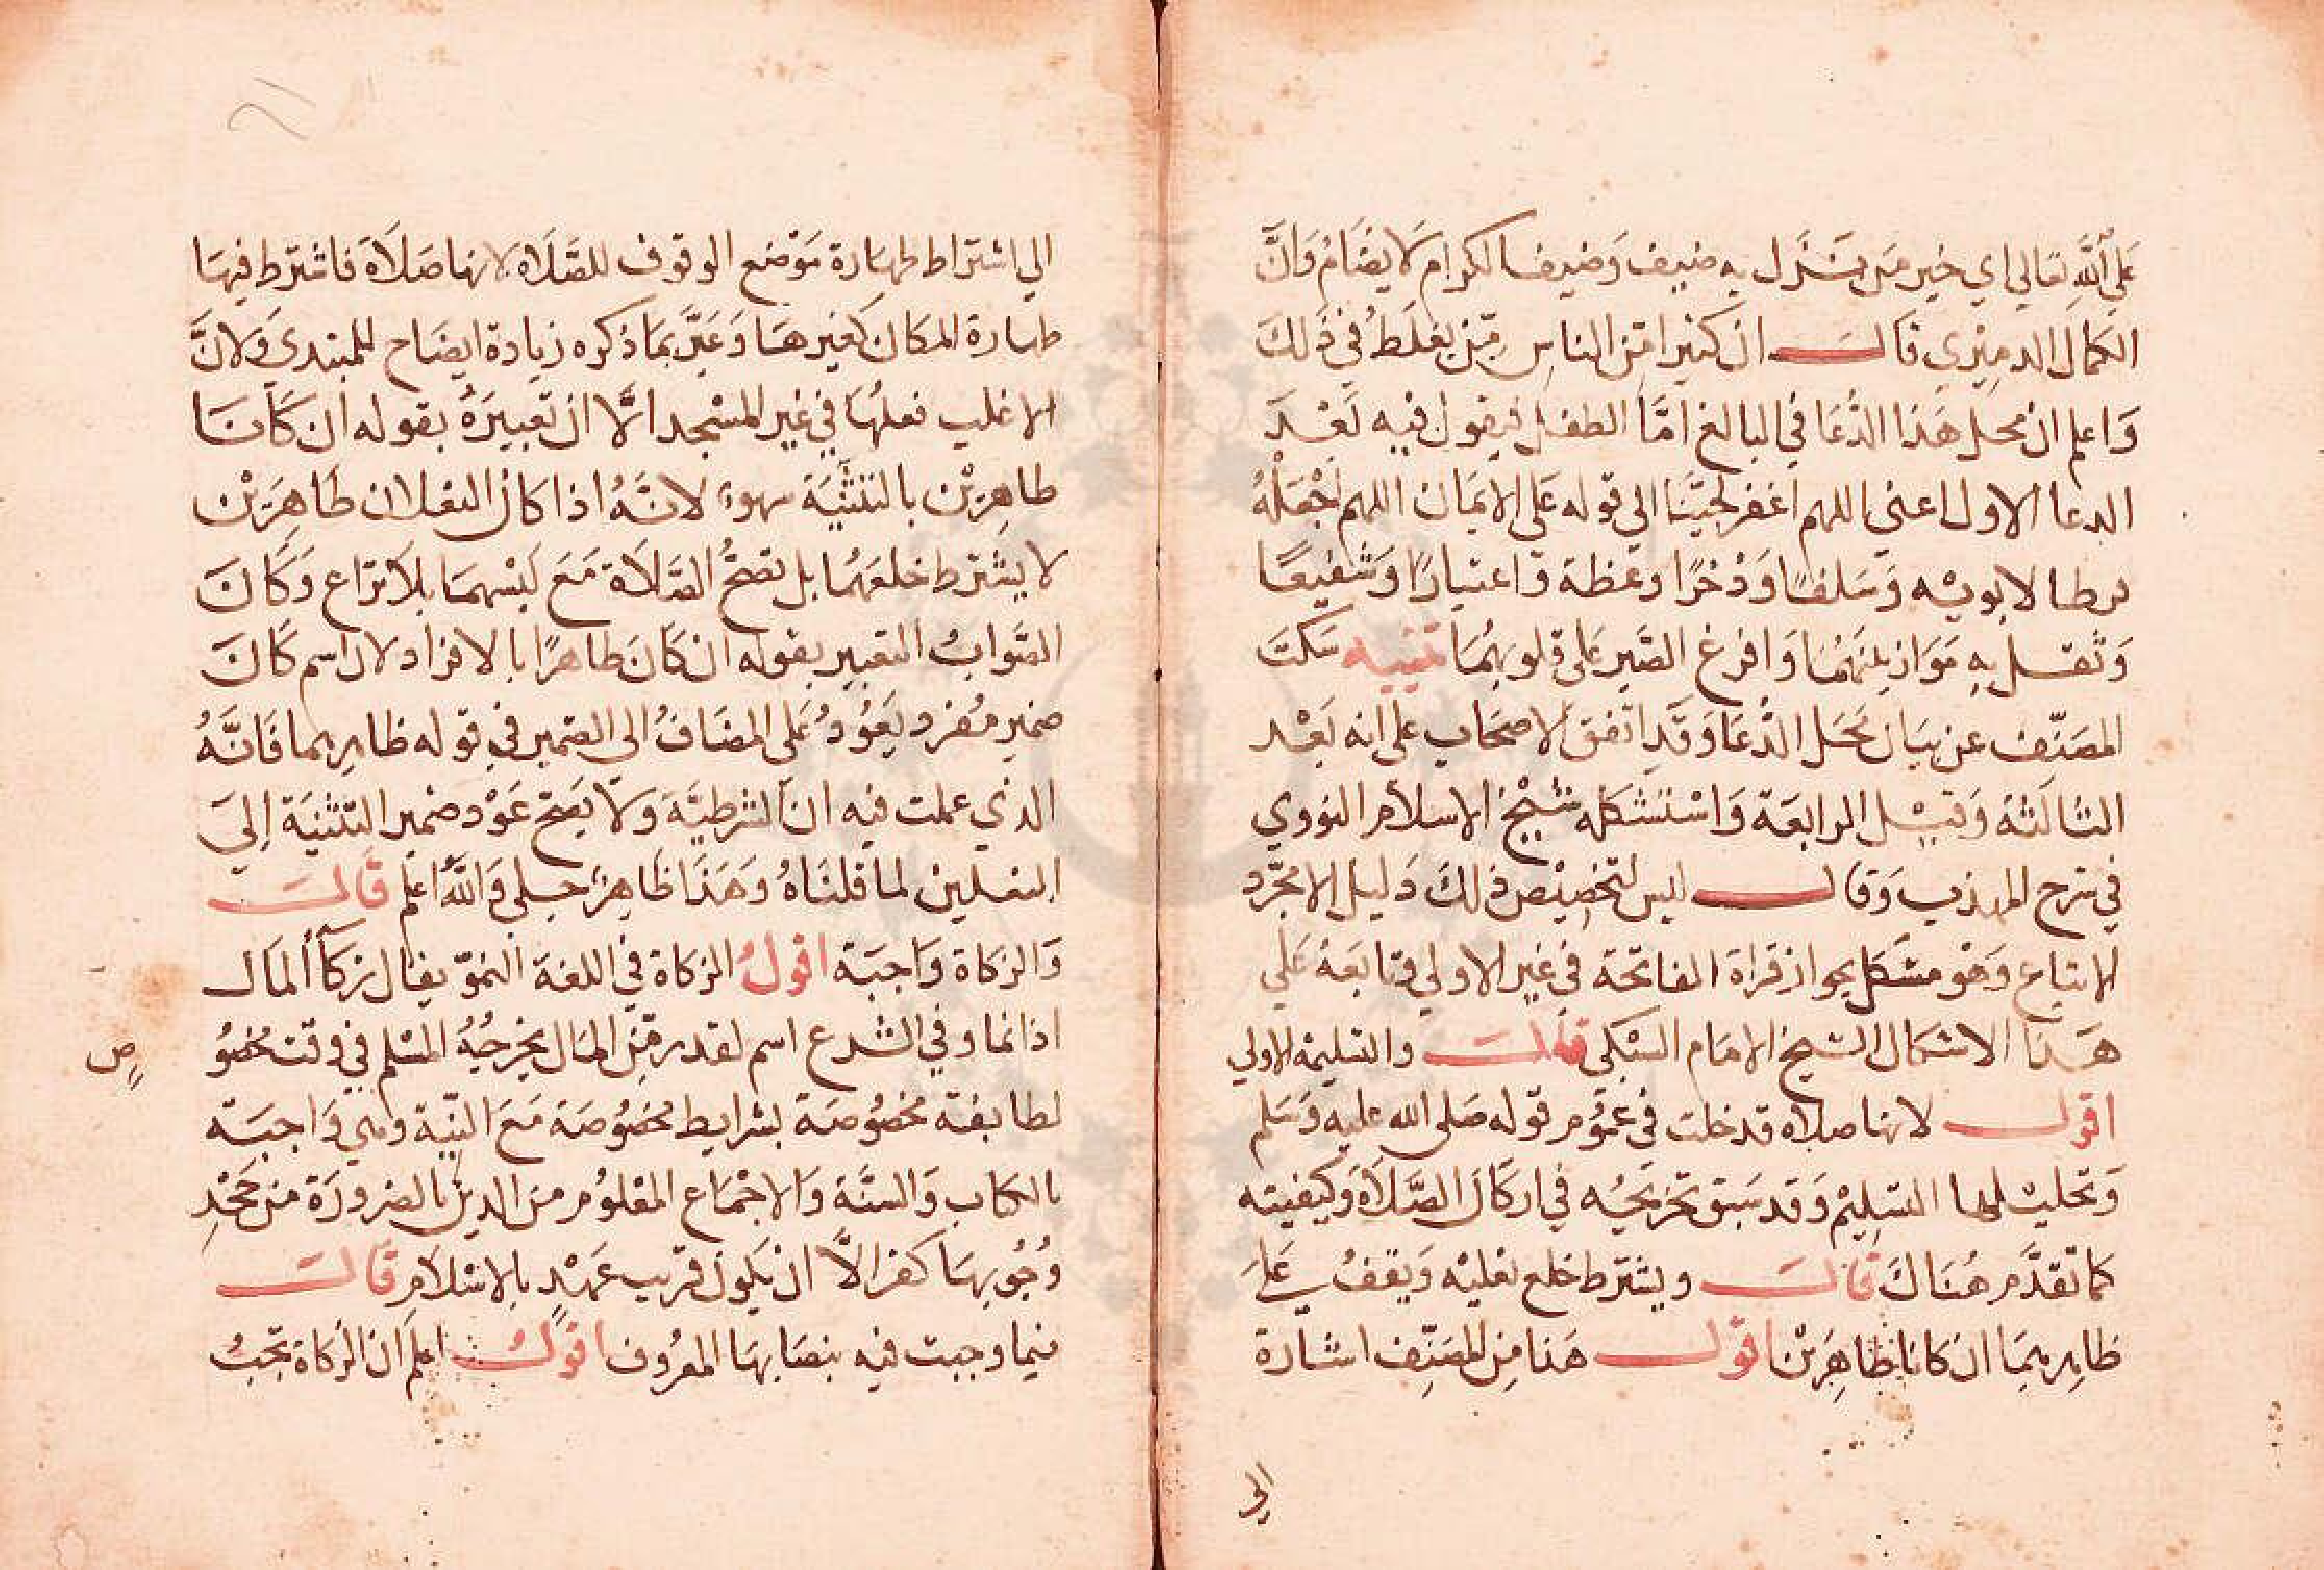 على الله تعالى اي خير من ينزل به ضيف وضيف الكرام لا يضام وان
الكمال الدميري قال ان كثيرا من الناس من يغلط في ذلك
واعلم ان محل هذا الدعا في البالغ اما الطفل فيقول فيه بعد
الدعا الاول اعني اللهم اغفر لحينا الى قوله على الايمان اللهم اجعله
فرطا لابويه وسلفا وذخرا وعظة واعتبارا وشفيعا
وثقل به موازينهما وافرغ الصبر على قلوبهما تنبيه سكت
المصنف عن بيان محل الدعا وقد اتفق الاصحاب على انه بعد
الثالثة وقبل الرابعة واستشكله شيخ الاسلام النووي
في شرح المهذب وقال ليس لتخصيص ذلك دليل الا مجرد
الاتباع وهو مشكل بجواز قراة الفاتحة في غير الاولى وتابعه على
هذا الاشكال الشيخ الامام السبكي قال والتسليمة الاولي
اقول لانها صلاه قد خلت في عموم قوله صلى الله عليه وسلم
وتحليلها التسليم وقد سبق تخريجه في اركان الصلاة وكيفيته
كما تقدم هناك قال ويشترط خلع نعليه ويقف على
ظاهرهما ان كانا طاهرين اقول هذا من المصنف اشارة
الي
الي اشتراط طهارة موضع الوقوف للصلاه لانها صلاة فاشترط فيها
طهارة المكان كغيرها وعبر بما ذكره زيادة ايضاح للمبتدي ولان
الاغلب فعلها في غير المسجد الا ان تعبيره بقوله ان كانا
طاهرين بالتثنية سهو لانه اذا كان النعلان طاهرين
لا يشترط خلعهما بل تصح الصلاة مع لبسهما بلا نزاع وكان
الصواب التعبير بقوله ان كان طاهرا بالافراد لان اسم كان
ضمير مفرد يعود على المضاف الى الضمير في قوله ظاهرهما فانه
الذي عملت فيه ان الشرطية ولا يصح عود ضمير التثنية الي
النعلين لما قلناه وهذا ظاهر جلي والله اعلم قال
والزكاة واجبة اقول الزكاة في اللغة النمو يقال زكا المال
اذا نما وفي الشرع اسم لقدر من المال يخرجه المسلم في وقت مخصو
ص
لطايفة مخصوصة بشرايط مخصوصة مع النية وهي واجبة
بالكتاب والسنة والاجماع المعلوم من الدين بالضرورة من جحد
وجوبها كفر الا ان يكون قريب عهد بالاسلام قال
فيما وجبت فيه بنصابها المعروف اقول اعلم ان الزكاة تجب